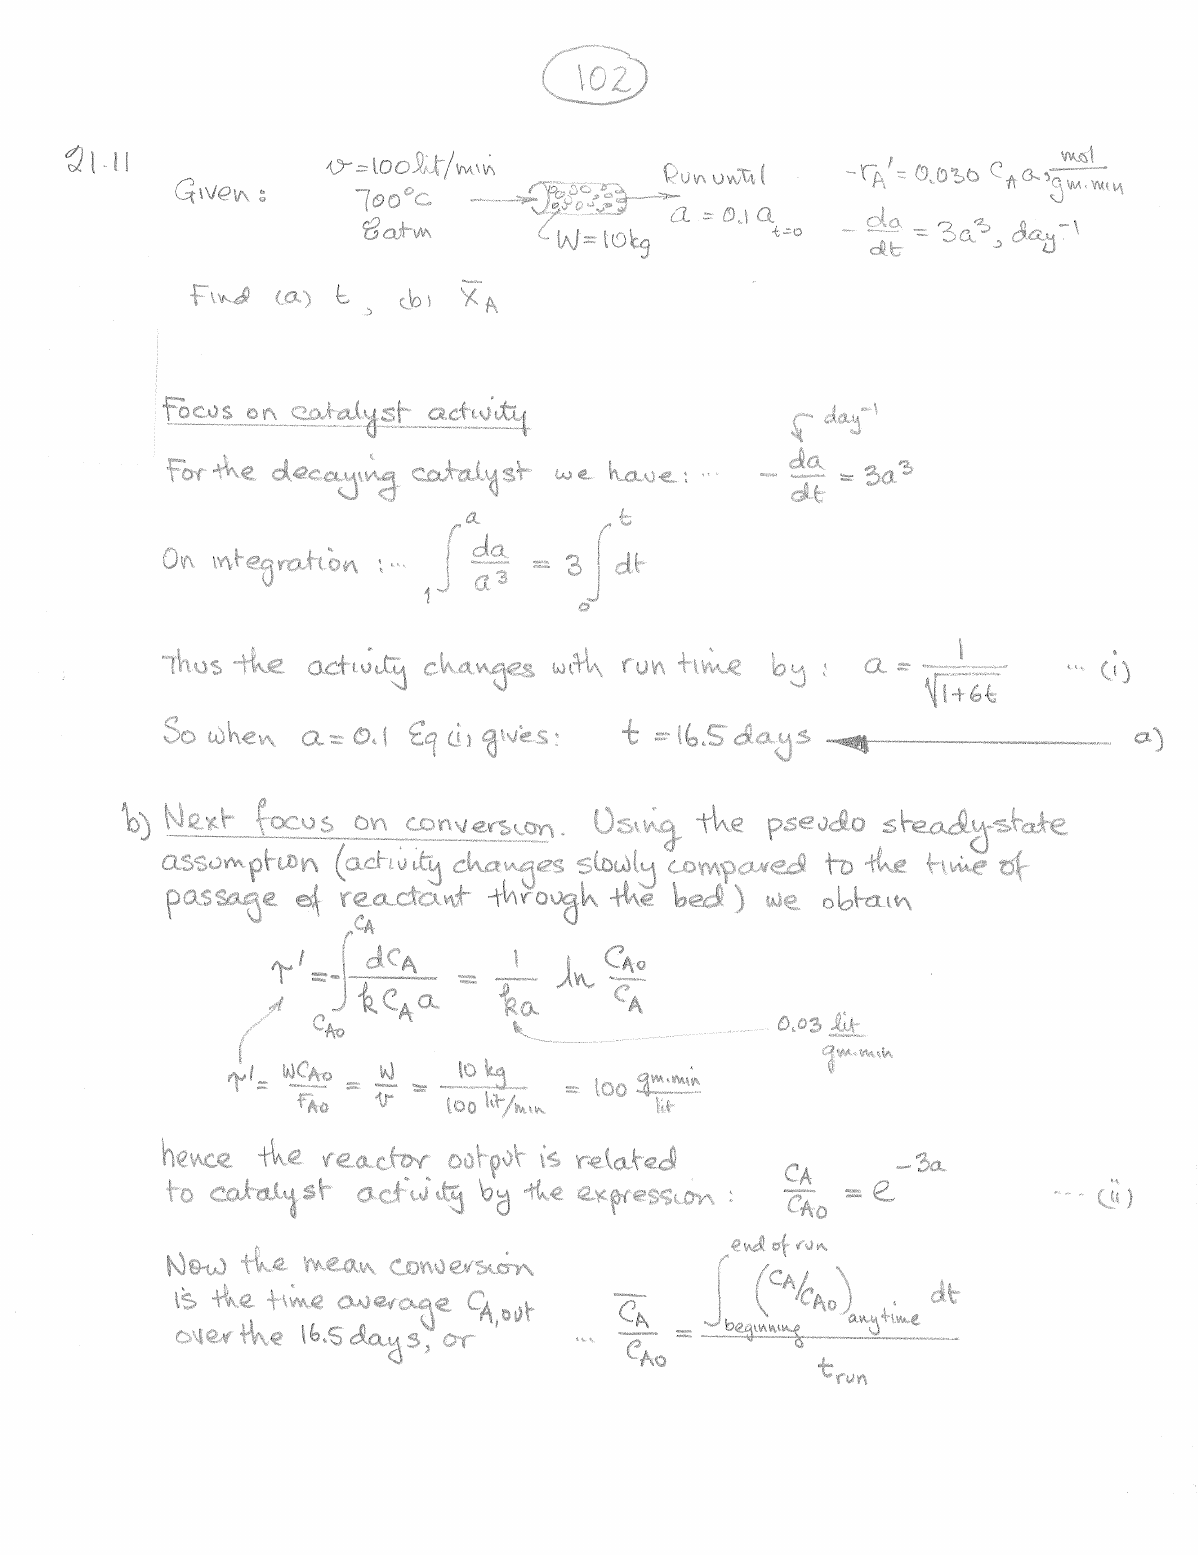 102
21-11
Given: v=100 lit/min
700°C
8 atm
W=10kg
Run until
a = 0.1 a t=0
-rA' = 0.030 CA a, mol/gm.min
-da/dt = 3a³, day⁻¹
Find (a) t, (b) X̄A
Focus on catalyst activity
day⁻¹
For the decaying catalyst we have: ... -da/dt = 3a³
On integration: ... ∫₁ᵃ da/a³ = 3 ∫₀ᵗ dt
Thus the activity changes with run time by: a = 1/√(1+6t) ... (i)
So when a=0.1 Eq (i) gives: t = 16.5 days a)
b) Next focus on conversion. Using the pseudo steady-state
assumption (activity changes slowly compared to the time of
passage of reactant through the bed) we obtain
τ' = -∫_CA0^CA dCA/(k CA a) = 1/(ka) ln CA0/CA
0.03 lit/gm.min
τ' = WCA0/FA0 = W/v = 10 kg/100 lit/min = 100 gm.min/lit
hence the reactor output is related
to catalyst activity by the expression: CA/CA0 = e^(-3a) ... (ii)
Now the mean conversion
is the time average CA,out
over the 16.5 days, or ... C̄A/CA0 = ∫_beginning^end of run (CA/CA0)any time dt / t run